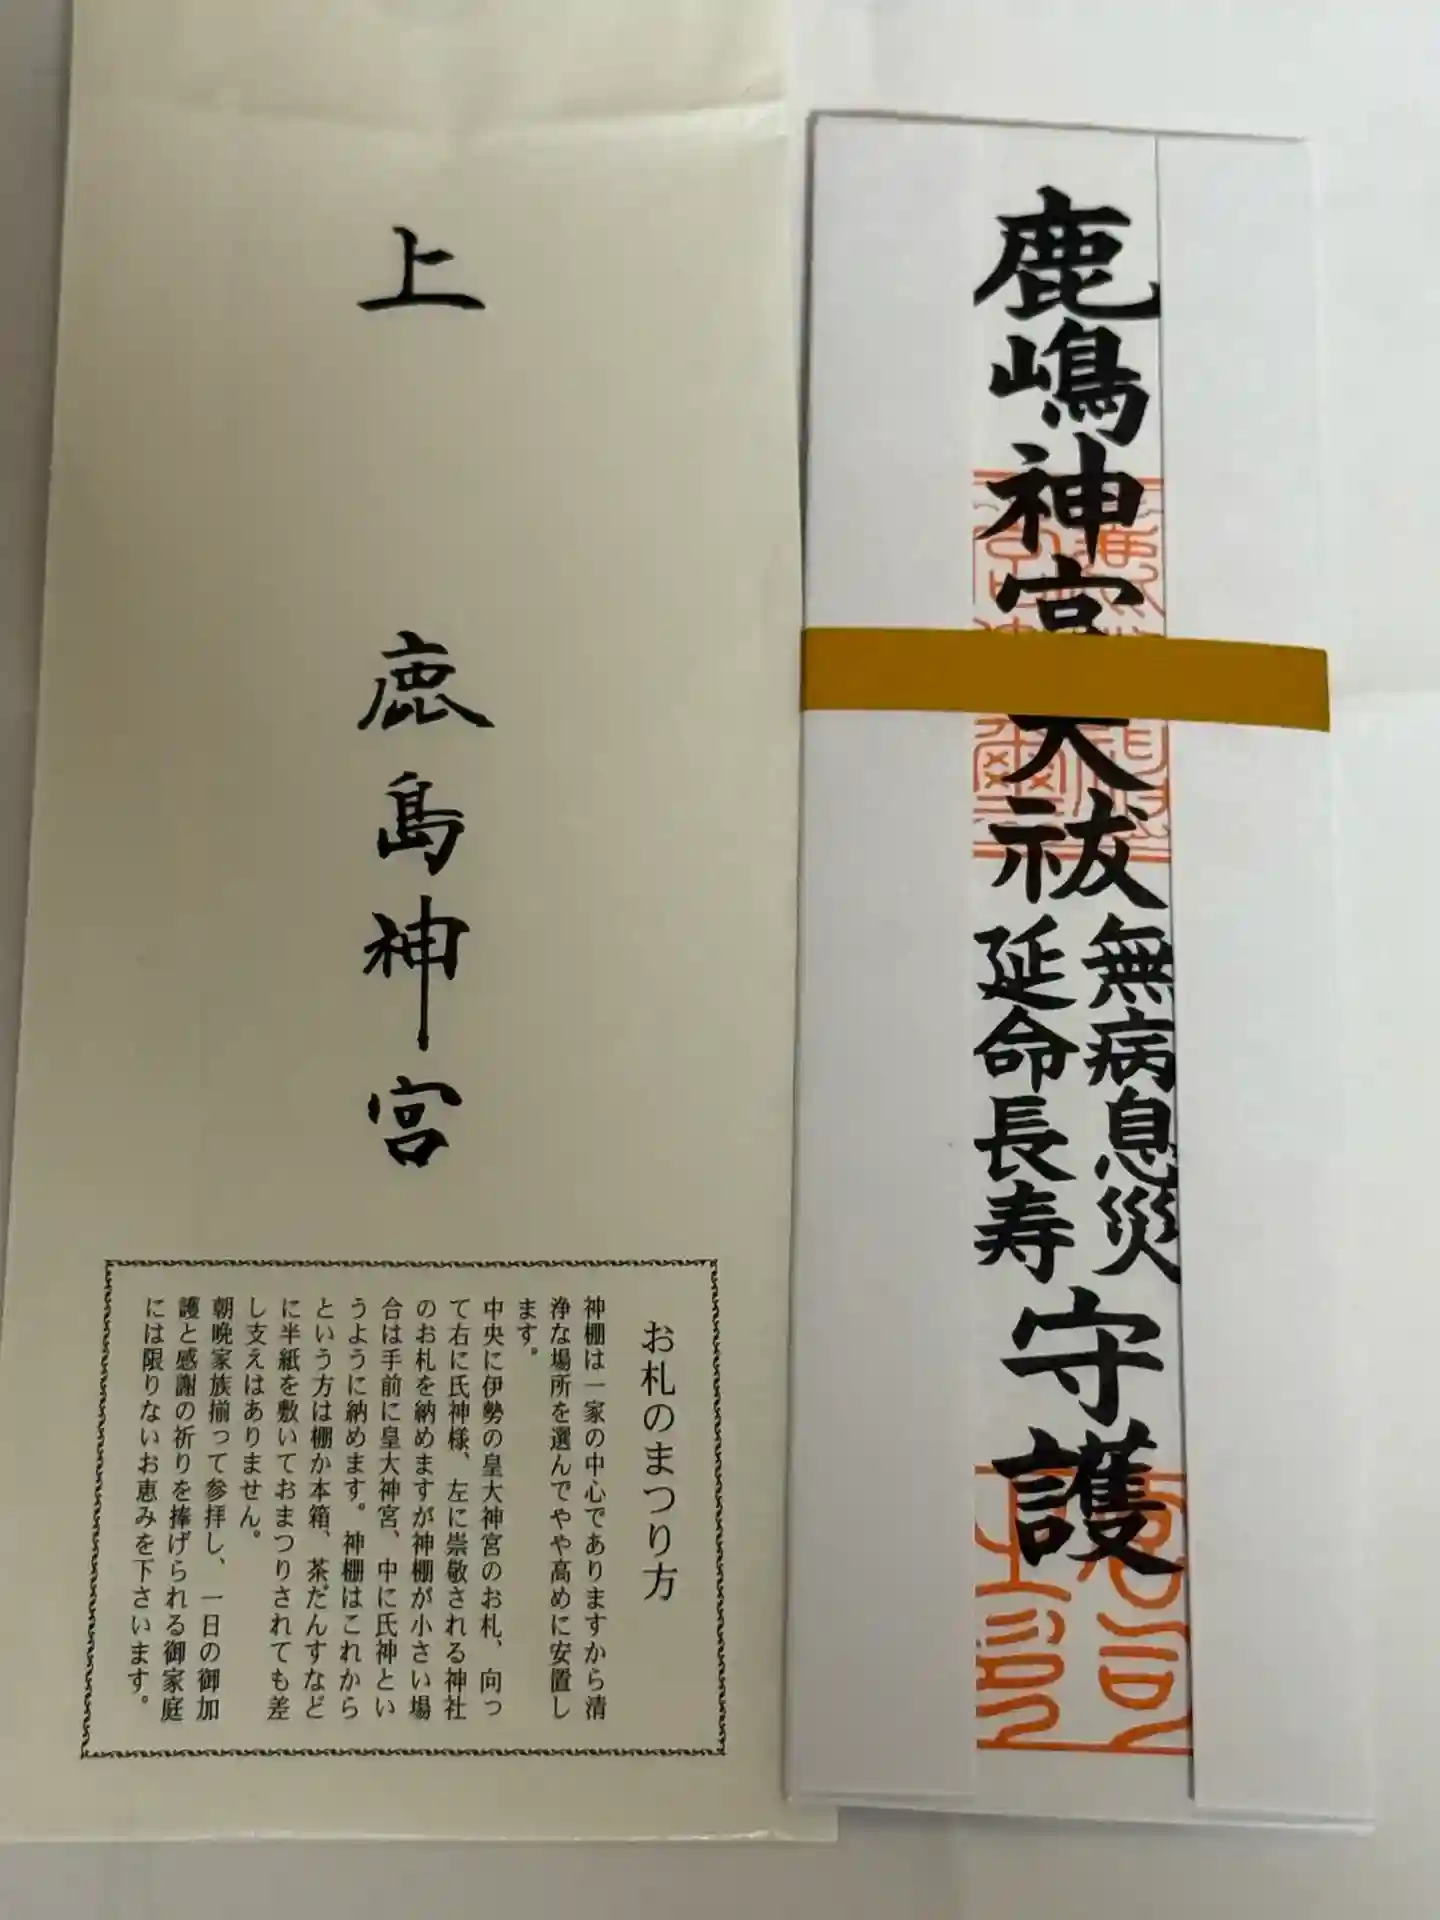 上
鹿島神宮
お札のまつり方
神棚は一家の中心でありますから清
浄な場所を選んでやや高めに安置し
ます。
中央に伊勢の皇大神宮のお札、向っ
て右に氏神様、左に崇敬される神社
のお札を納めますが神棚が小さい場
合は手前に皇大神宮、中に氏神とい
うように納めます。神棚はこれから
という方は棚か本箱、茶だんすなど
に半紙を敷いておまつりされても差
し支えはありません。
朝晩家族揃って参拝し、一日の御加
護と感謝の祈りを捧げられる御家庭
には限りないお恵みを下さいます。
鹿嶋神宮大祓
無病息災
延命長寿
守護